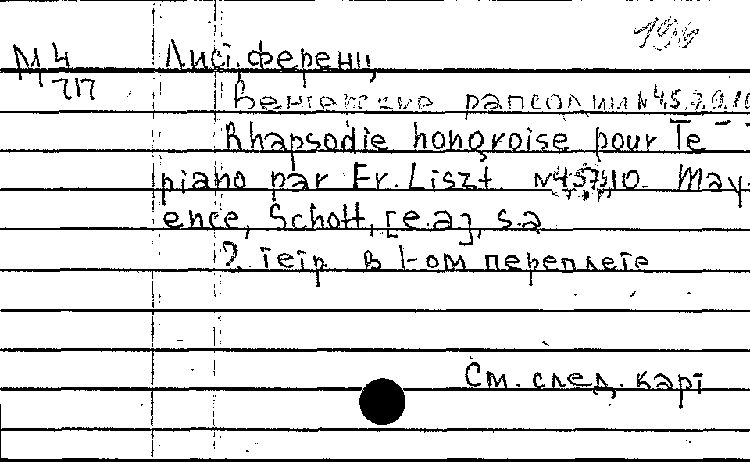 М 4
717
Лист, Ференц
Венгерские рапсодии №4,5,7,9,10
Rhapsodie hongroise pour le
piano par Fr. Liszt. 10. May-
ence, Schott, [e.a], s.a
2 тетр. в 1-ом переплете
См. след. карт